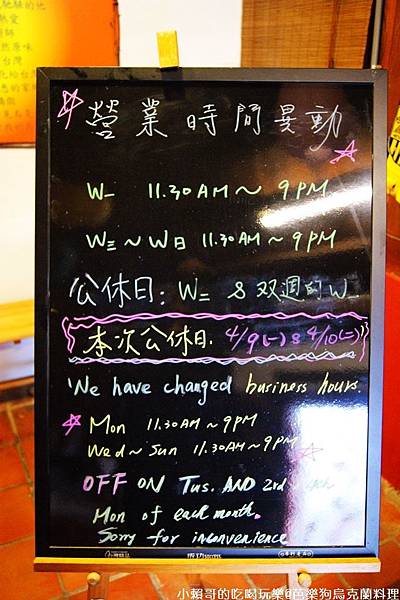 營業時間異動
W一 11.30AM~9PM
W三~W日 11.30AM~9PM
公休日: W二 & 双週的W一
本次公休日. 4/9(一)&4/10(二)
We have changed business hours
Mon 11.30AM~9PM
Wed~Sun 11.30AM~9PM
OFF ON Tus. AND 2nd
Mon of each month.
Sorry for inconvenience
小賴哥的吃喝玩樂@芭樂狗烏克蘭料理